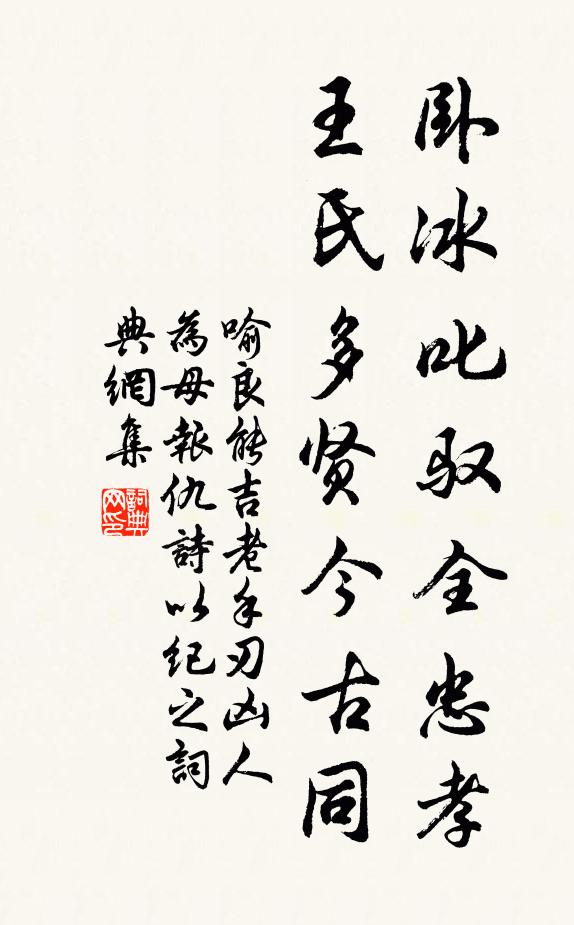 卧冰叱驭全忠孝
王氏多贤今古同
喻良能吉老手刃凶人
為母報仇詩以纪之詞
典網集
詞典网印